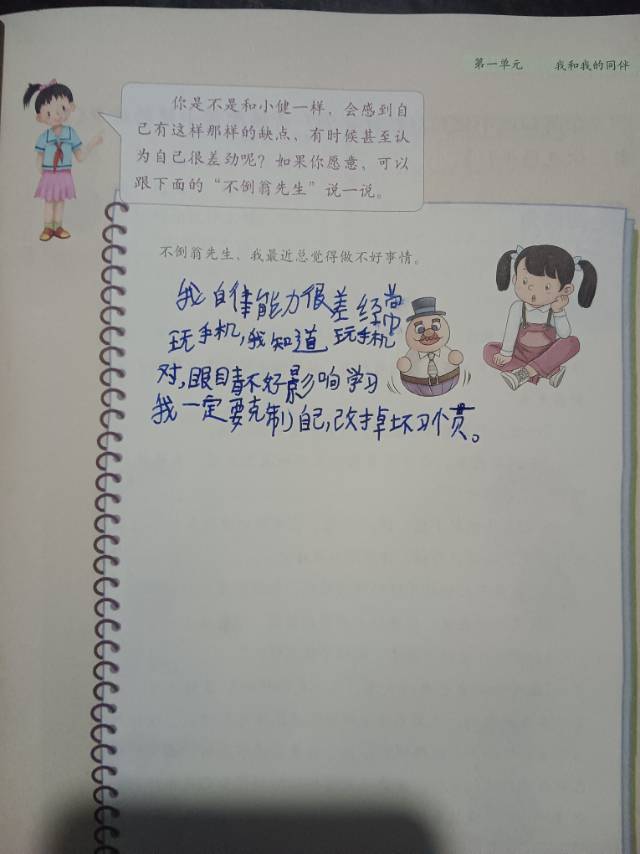 第一单元 我和我的同伴
你是不是和小健一样，会感到自
己有这样那样的缺点，有时候甚至认
为自己很差劲呢？如果你愿意，可以
跟下面的“不倒翁先生”说一说。
不倒翁先生，我最近总觉得做不好事情。
我自律能力很差经常
玩手机，我知道玩手机
对，眼睛不好影响学习
我一定要克制自己，改掉坏习惯。